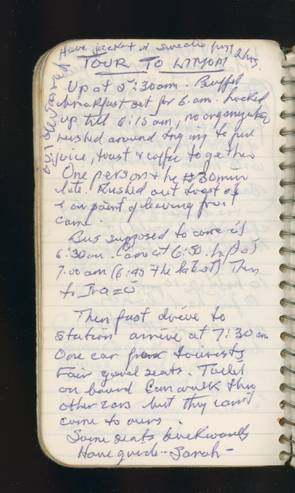 Have jacket & sweater first 2 hrs.
TOUR TO
Up at 5:30am. Buffet
breakfast set for 6 am. Locked
up till 6:15 am, no organization
rushed around trying to put
juice, toast & coffee together
One person the 30 min
late. Rushed out toast
on point of leaving
came.
Bus supposed to come at
6:30 am. Came at 6:50.
7:00 am (6:45 the latest) Then
to
Then fast drive to
station arrive at 7:30 am
One car for tourists
Fair good seats. Toilet
on board Can walk thru
other cars but they can't
come to ours.
Some seats backwards
Have guide - Sarah -